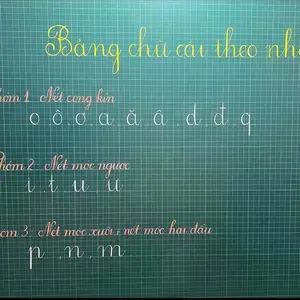 Bảng chữ cái theo nh
hóm 1: Nét cong kín
o , ô , ơ , a , ă , â , d , đ , q
hóm 2: Nét móc ngược
i , t , u , ư
óm 3: Nét móc xuôi ; nét móc hai đầu
p , n , m